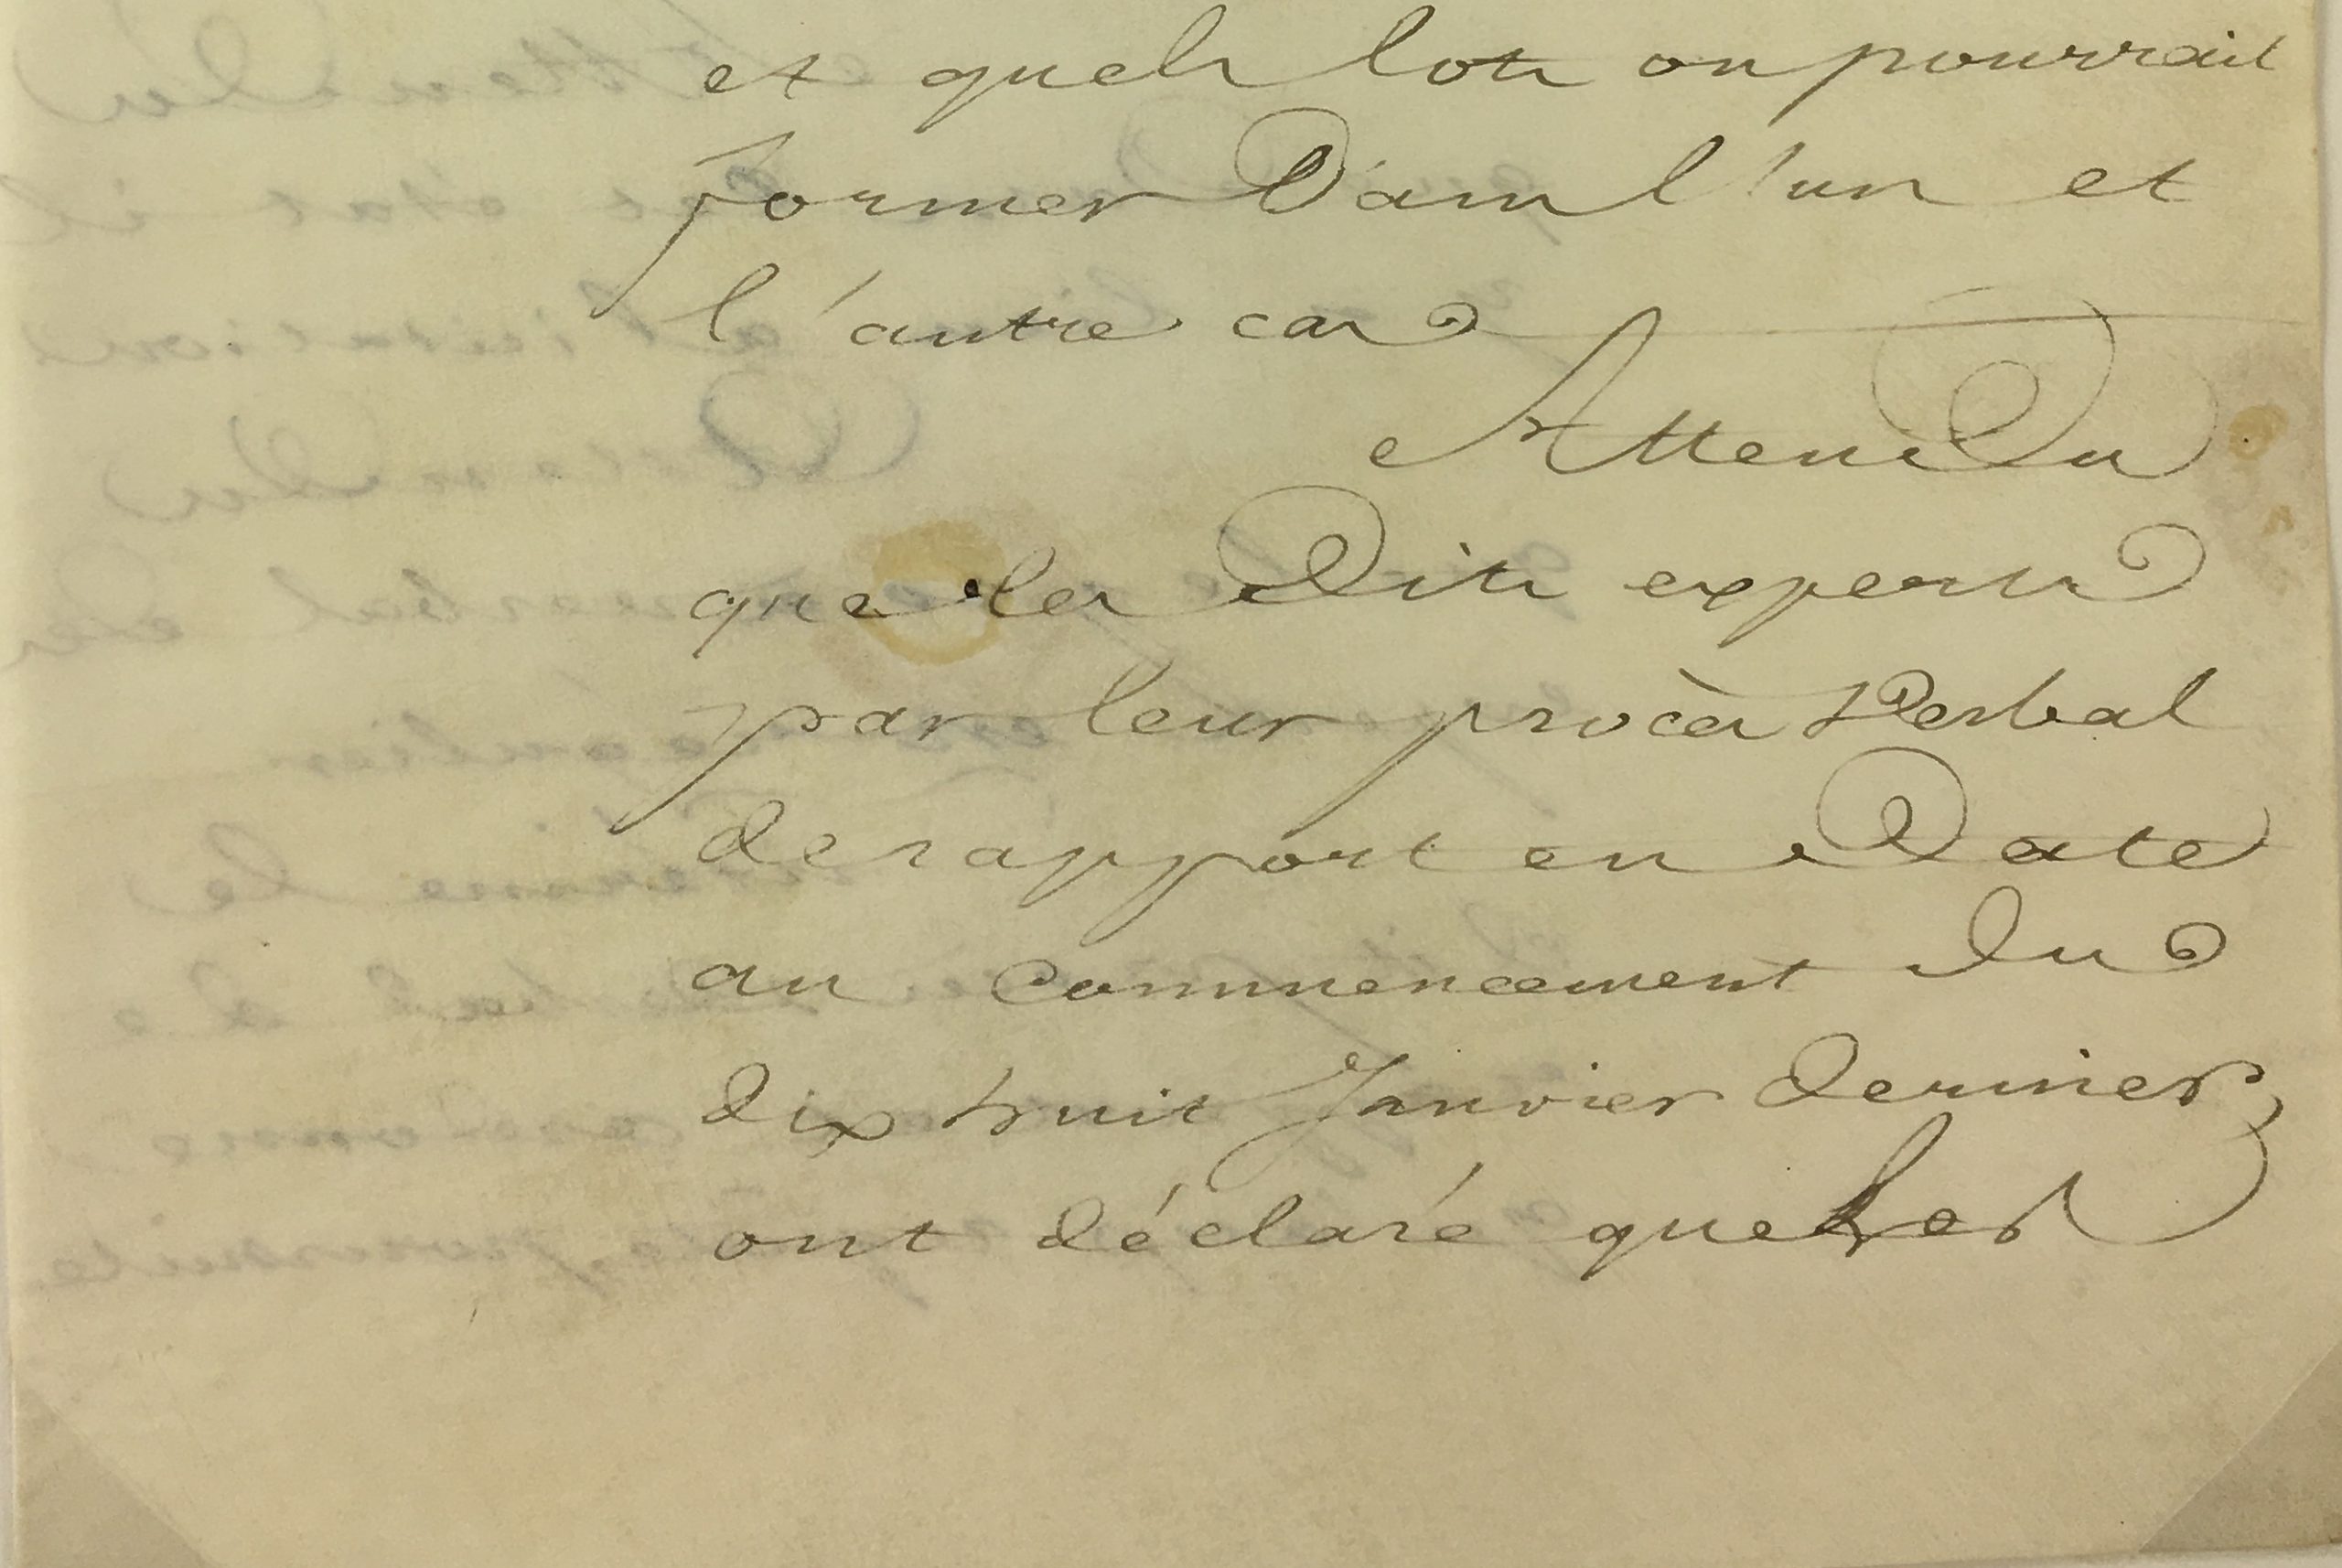 et quels lots on pourrait
former Dans l'un et
l'autre cas
Attendu
que les Dits experts
par leur procès Verbal
de rapport en Date
au Commencement du
dix huit Janvier dernier,
ont déclaré que les